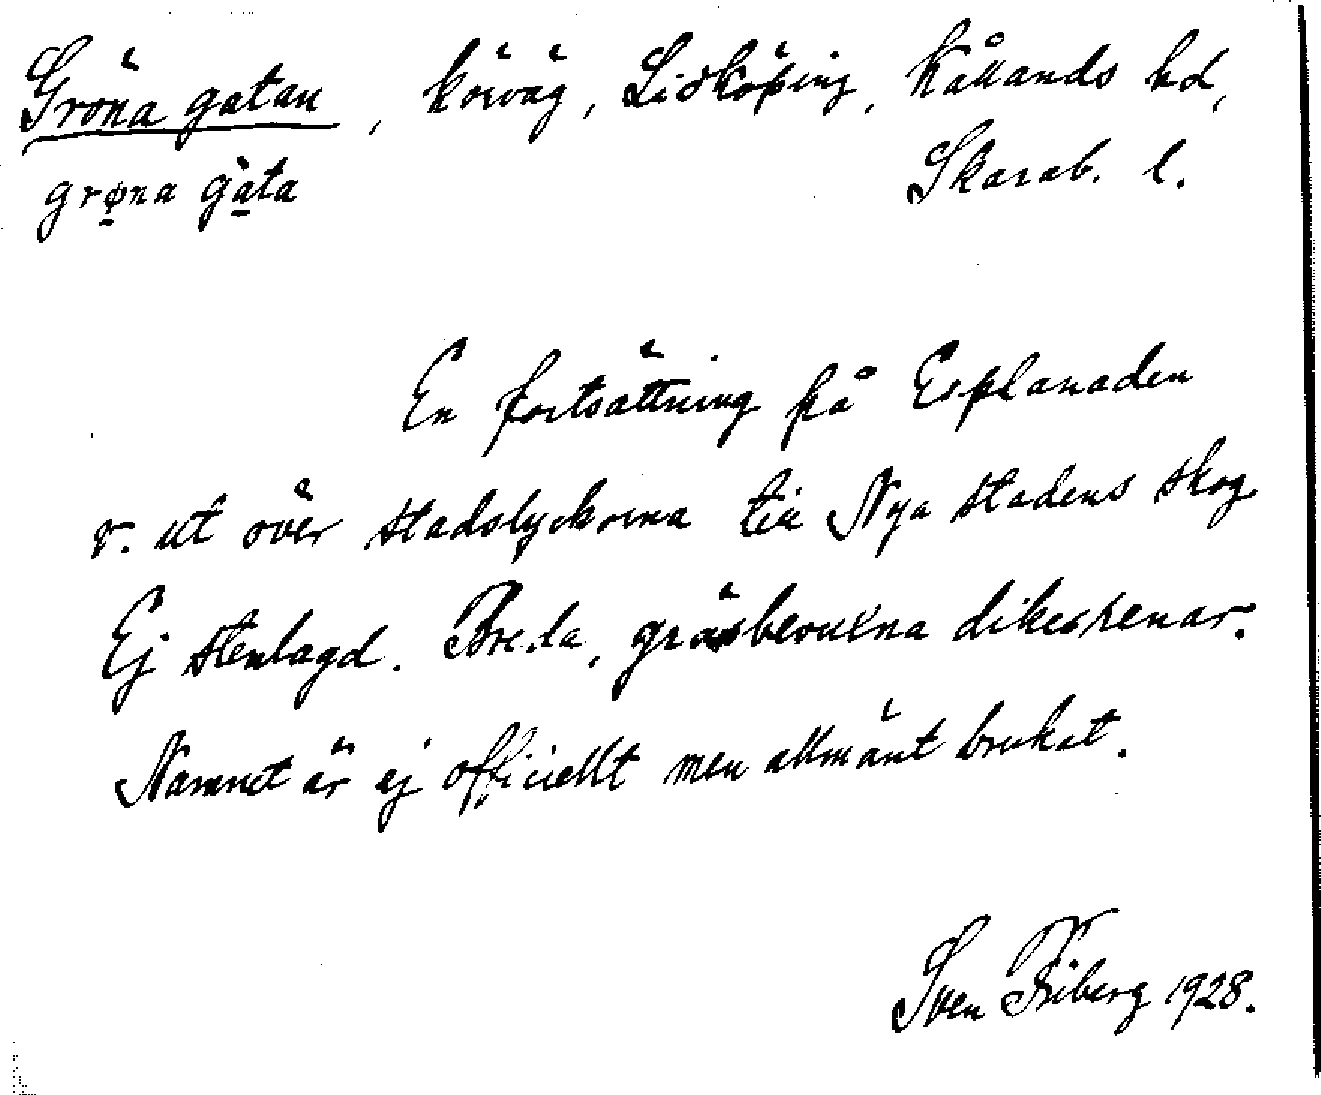 Gröna gatan, körväg, Lidköping, Kållands hd,
grøna gàta Skarab. l.
En fortsättning på Esplanaden
v. ut över stadslyckorna till Nya stadens skog.
Ej stenlagd. Breda, gräsbevuxna dikesrenar.
Namnet är ej officiellt men allmänt brukat.
Sven Friberg 1928.